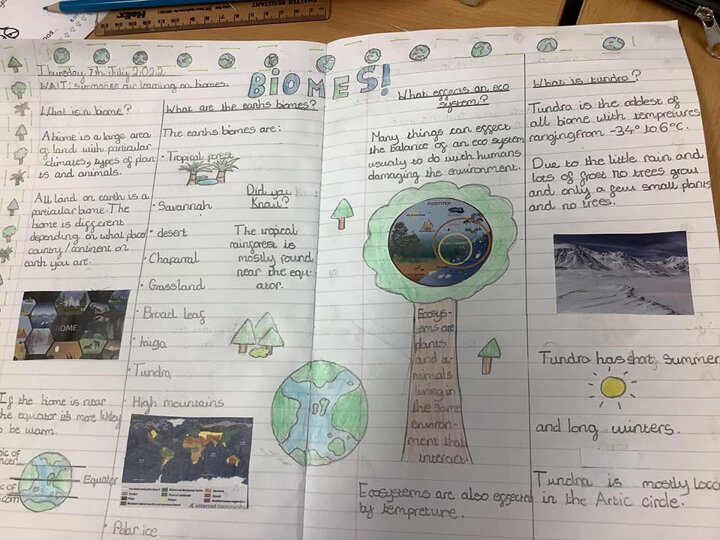 Thursday 7th July 2022
WAIT: summarise our learning on biomes.
BIOMES!
What is a biome?
A biome is a large area
of land with particular
climates, types of plan
ts and animals.
All land on earth is a
particular biome. The
biome is different
depending on what place
country/continent on
earth you are.
BIOME
If the biome is near
the equator its more likley
to be warm.
Equator
What are the earths biomes?
The earths biomes are:
• Tropical forest
• Savannah
• desert
• Chaparral
• Grassland
• Broad leaf
• taiga
• Tundra
• High mountains
• Polar ice
Did you
Know?
The tropical
rainforest is
mostly found
near the equ-
ator.
internet geography
What effects an eco
system?
Many things can effect
the balance of an eco system
usualy to do with humans
damaging the environment.
ECOSYSTEM
Ecosys-
tems are
plants
and a-
nimals
living in
the same
environ-
ment that
interact
Ecosystems are also effected
by tempreture.
What is tundra?
Tundra is the coldest of
all biome with tempretures
ranging from -34° to 6°C.
Due to the little rain and
lots of frost no trees grow
and only a few small plants
and no trees.
Tundra has short summer
and long winters.
Tundra is mostly loca
in the Artic circle.